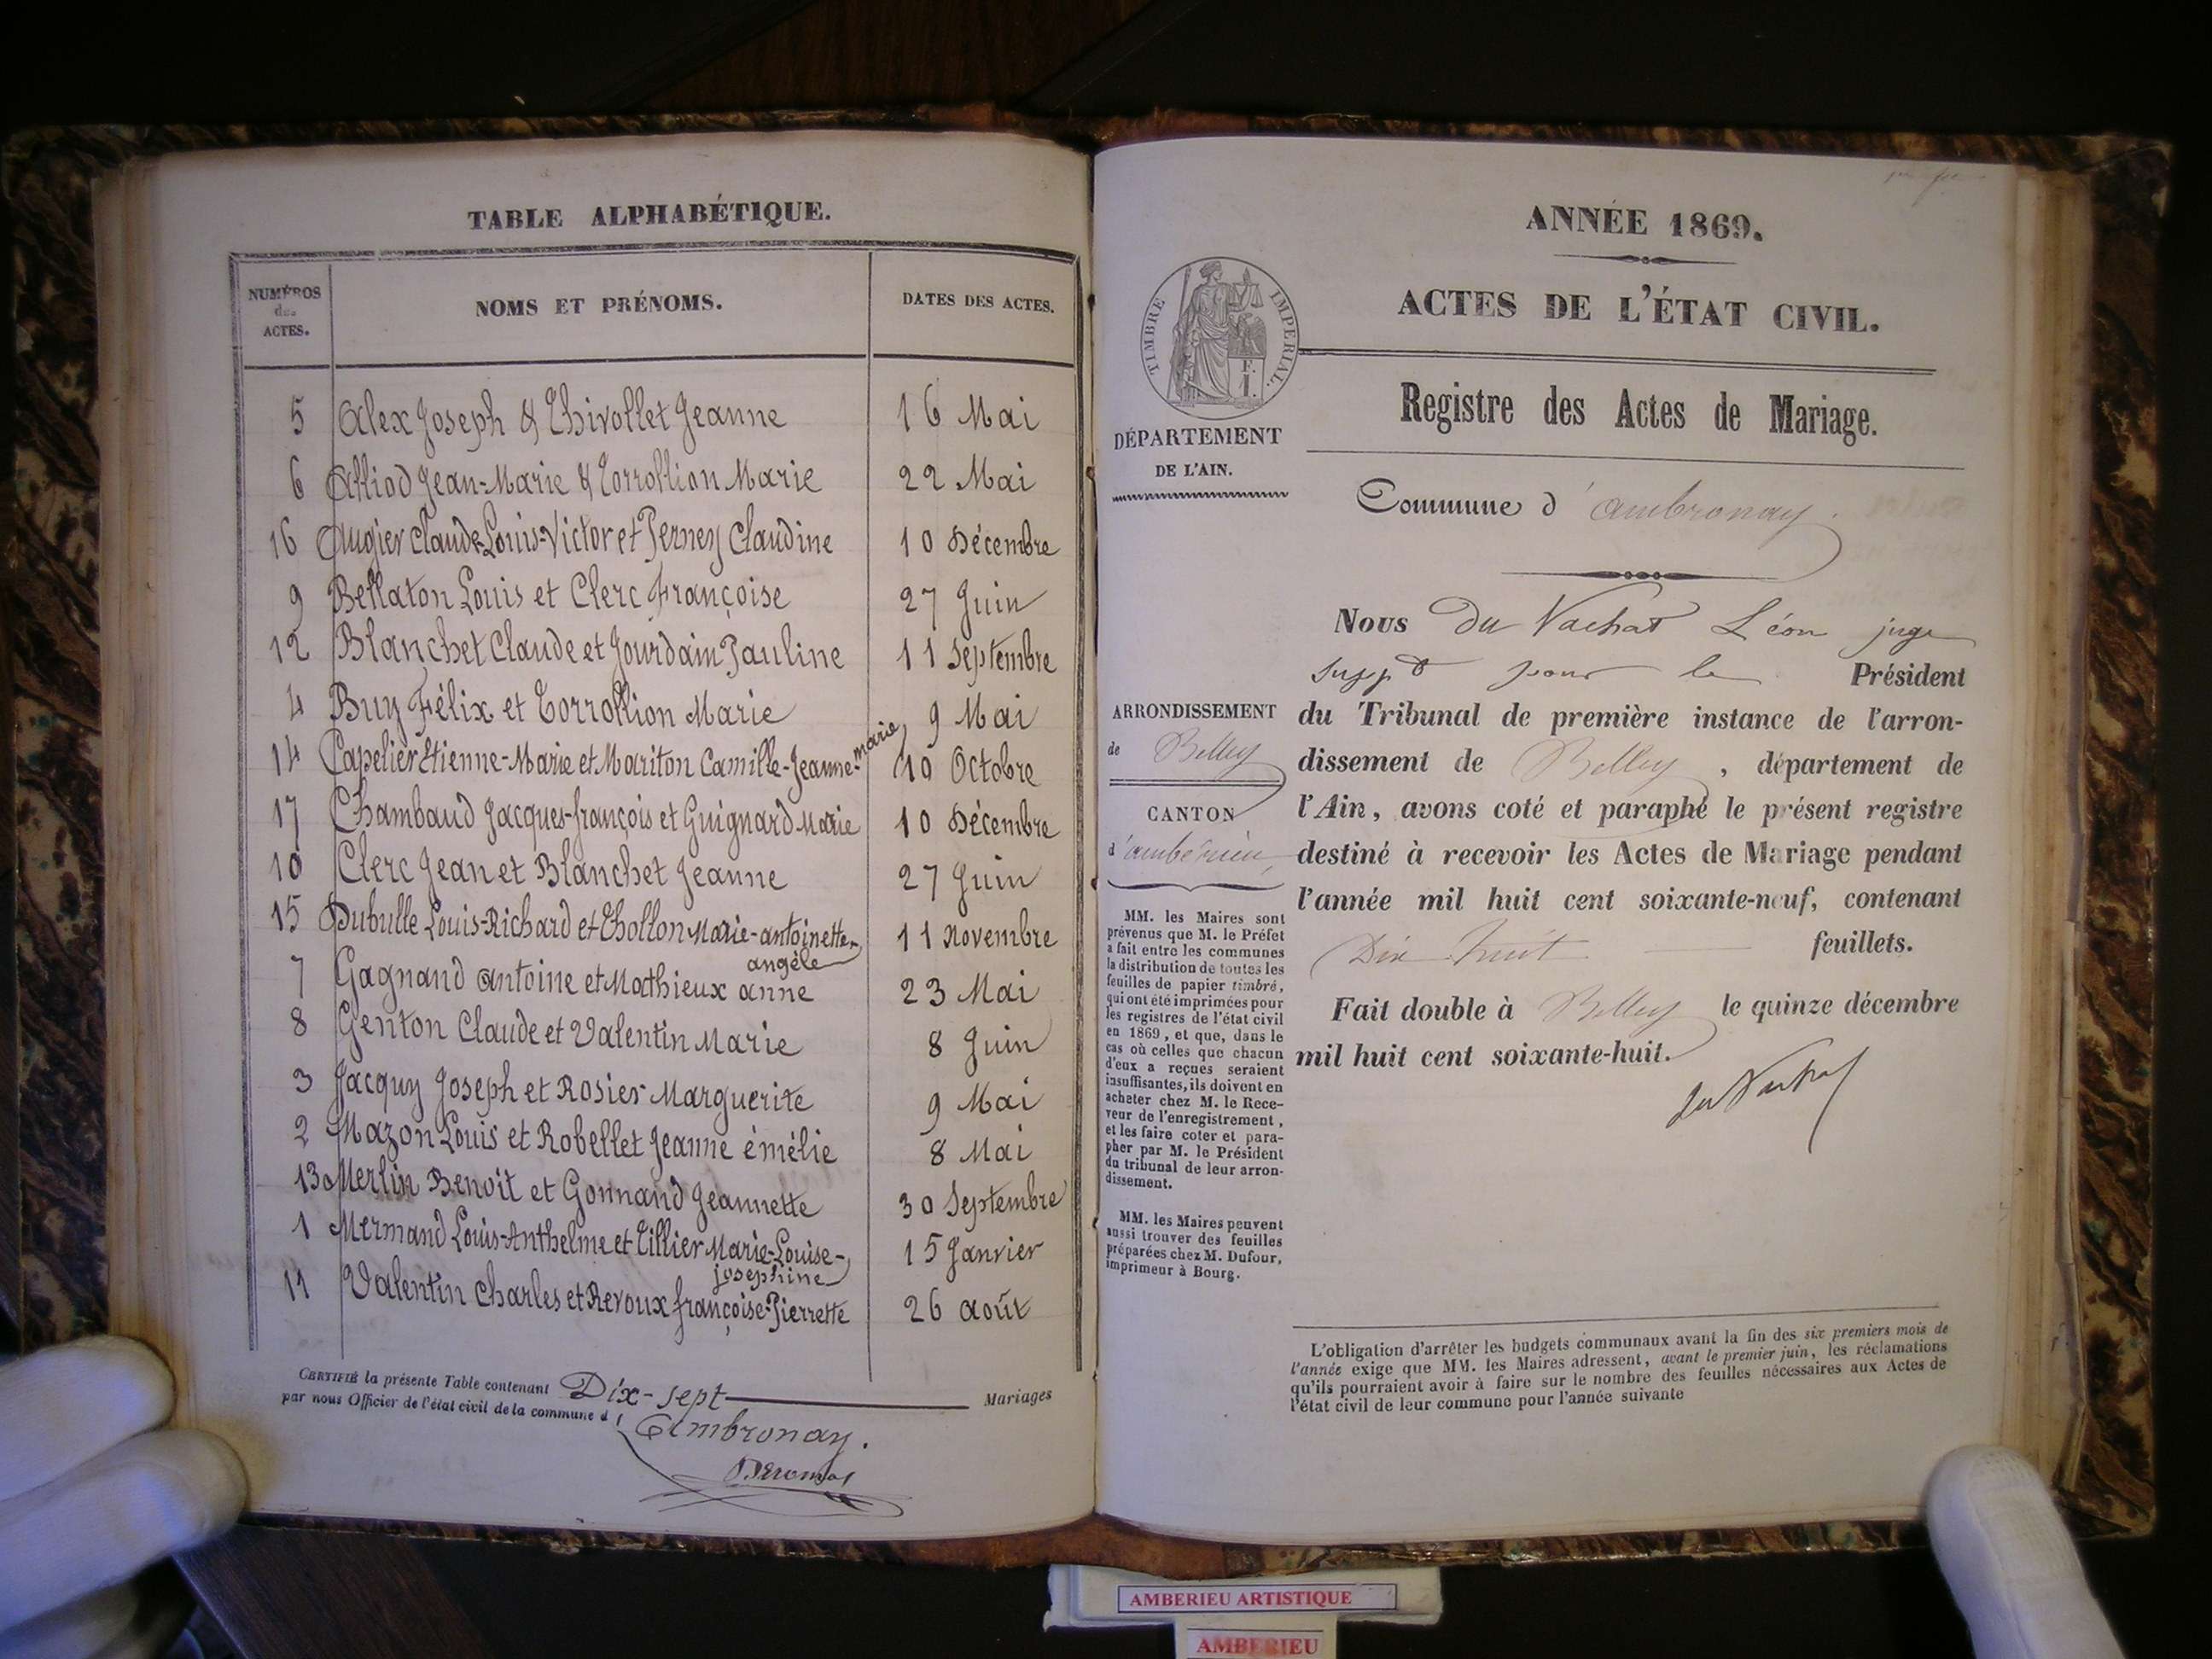 TABLE ALPHABÉTIQUE.
NUMÉROS
des
ACTES.
NOMS ET PRÉNOMS.
DATES DES ACTES.
5 Alex Joseph & Thivollet Jeanne 16 Mai
6 Alliod Jean-Marie & Torrollion Marie 22 Mai
16 Augier Claude-Louis-Victor et Perney Claudine 10 Décembre
9 Bellaton Louis et Clerc Françoise 27 Juin
12 Blanchet Claude et Jourdain Pauline 11 Septembre
4 Buy Félix et Torrollion Marie 9 Mai
14 Capelier Etienne-Marie et Mariton Camille-Jeanne-marie 19 Octobre
17 Chambaud Jacques-françois et Guignard Marie 10 Décembre
10 Clerc Jean et Blanchet Jeanne 27 Juin
15 Dubulle Louis-Richard et Thollon Marie-antoinette- 11 Novembre
angèle
7 Gagnand Antoine et Mathieux anne 23 Mai
8 Genton Claude et Valentin Marie 8 Juin
3 Jacquy Joseph et Rosier Marguerite 9 Mai
2 Mazon Louis et Robellet Jeanne émélie 8 Mai
13 Merlin Benoit et Gonnand Jeannette 30 Septembre
1 Mermand Louis-Anthelme et Tillier Marie-Louise- 15 Janvier
josephine
11 Valentin Charles et Revoux françoise-Pierrette 26 août
CERTIFIÉ la présente Table contenant Dix-sept Mariages
par nous Officier de l'état civil de la commune d'
Ambronay.
ANNÉE 1869.
ACTES DE L'ÉTAT CIVIL.
TIMBRE IMPÉRIAL.
F.
I.
Registre des Actes de Mariage.
DÉPARTEMENT
DE L'AIN.
Commune d'ambronay.
Nous Du Vachat Léon juge
suppt pour le Président
du Tribunal de première instance de l'arron-
dissement de Belley, département de
l'Ain, avons coté et paraphé le présent registre
destiné à recevoir les Actes de Mariage pendant
l'année mil huit cent soixante-neuf, contenant
Dix huit feuillets.
Fait double à Belley le quinze décembre
mil huit cent soixante-huit.
du Vachat
ARRONDISSEMENT
de Belley
CANTON
d'ambérieu
MM. les Maires sont
prévenus que M. le Préfet
a fait entre les communes
la distribution de toutes les
feuilles de papier timbré,
qui ont été imprimées pour
les registres de l'état civil
en 1869, et que, dans le
cas où celles que chacun
d'eux a reçues seraient
insuffisantes, ils doivent en
acheter chez M. le Rece-
veur de l'enregistrement,
et les faire coter et para-
pher par M. le Président
du tribunal de leur arron-
dissement.
MM. les Maires peuvent
aussi trouver des feuilles
préparées chez M. Dufour,
imprimeur à Bourg.
L'obligation d'arrêter les budgets communaux avant la fin des six premiers mois de
l'année exige que MM. les Maires adressent, avant le premier juin, les réclamations
qu'ils pourraient avoir à faire sur le nombre des feuilles nécessaires aux Actes de
l'état civil de leur commune pour l'année suivante
AMBERIEU ARTISTIQUE
AMBERIEU